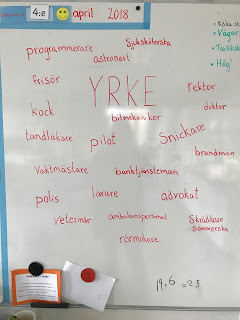 4:e april 2018
programmerare
Sjuksköterska
astronaut
frisör
YRKE
rektor
kock
bilmekaniker
doktor
tandläkare
pilot
Snickare
brandman
Vaktmästare
banktjänsteman
polis
lärare
advokat
veterinär
ambulanspersonal
Skräddare
Sömmerska
rörmokare